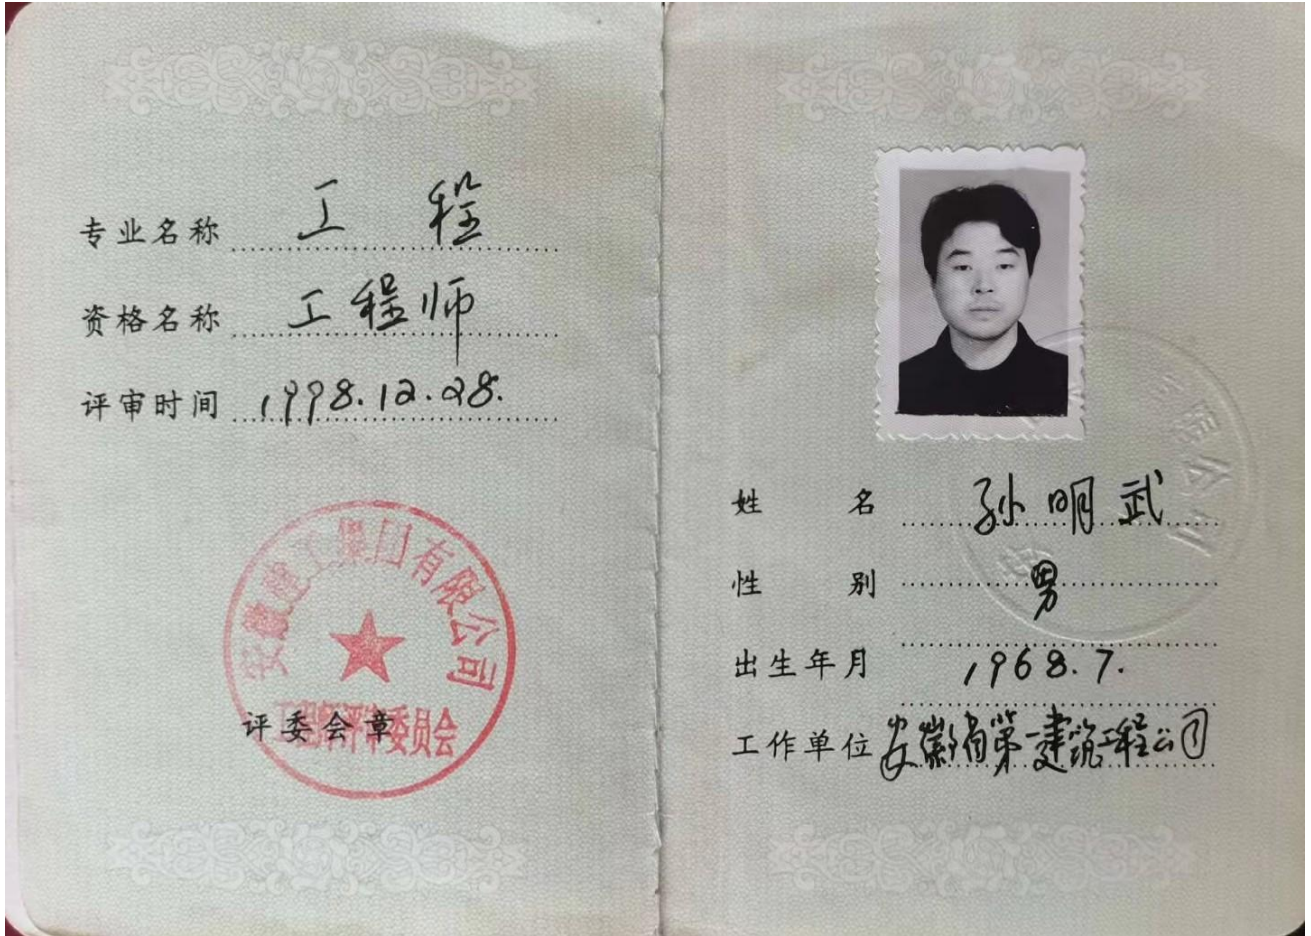 专业名称 工程
资格名称 工程师
评审时间 1998.12.28.
安徽建工集团有限公司
工程师评审委员会
评委会章
限公司
姓名 孙明武
性别 男
出生年月 1968.7.
工作单位 安徽省第一建筑工程公司